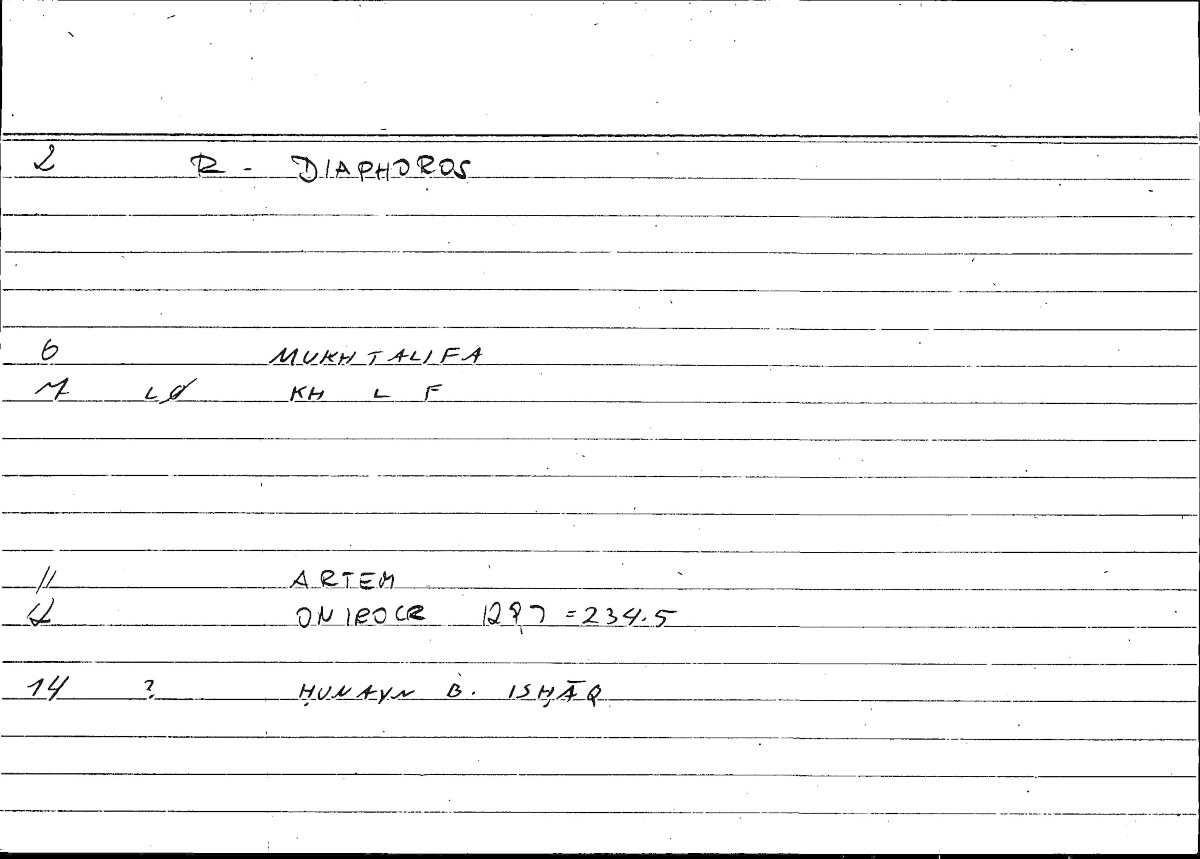 2 R - DIAPHOROS
6 MUKHTALIFA
7 LØ KH L F
11 ARTEM
12 ONIROCR = 234.5
14 ? ḤUNAYN B. ISḤĀQ